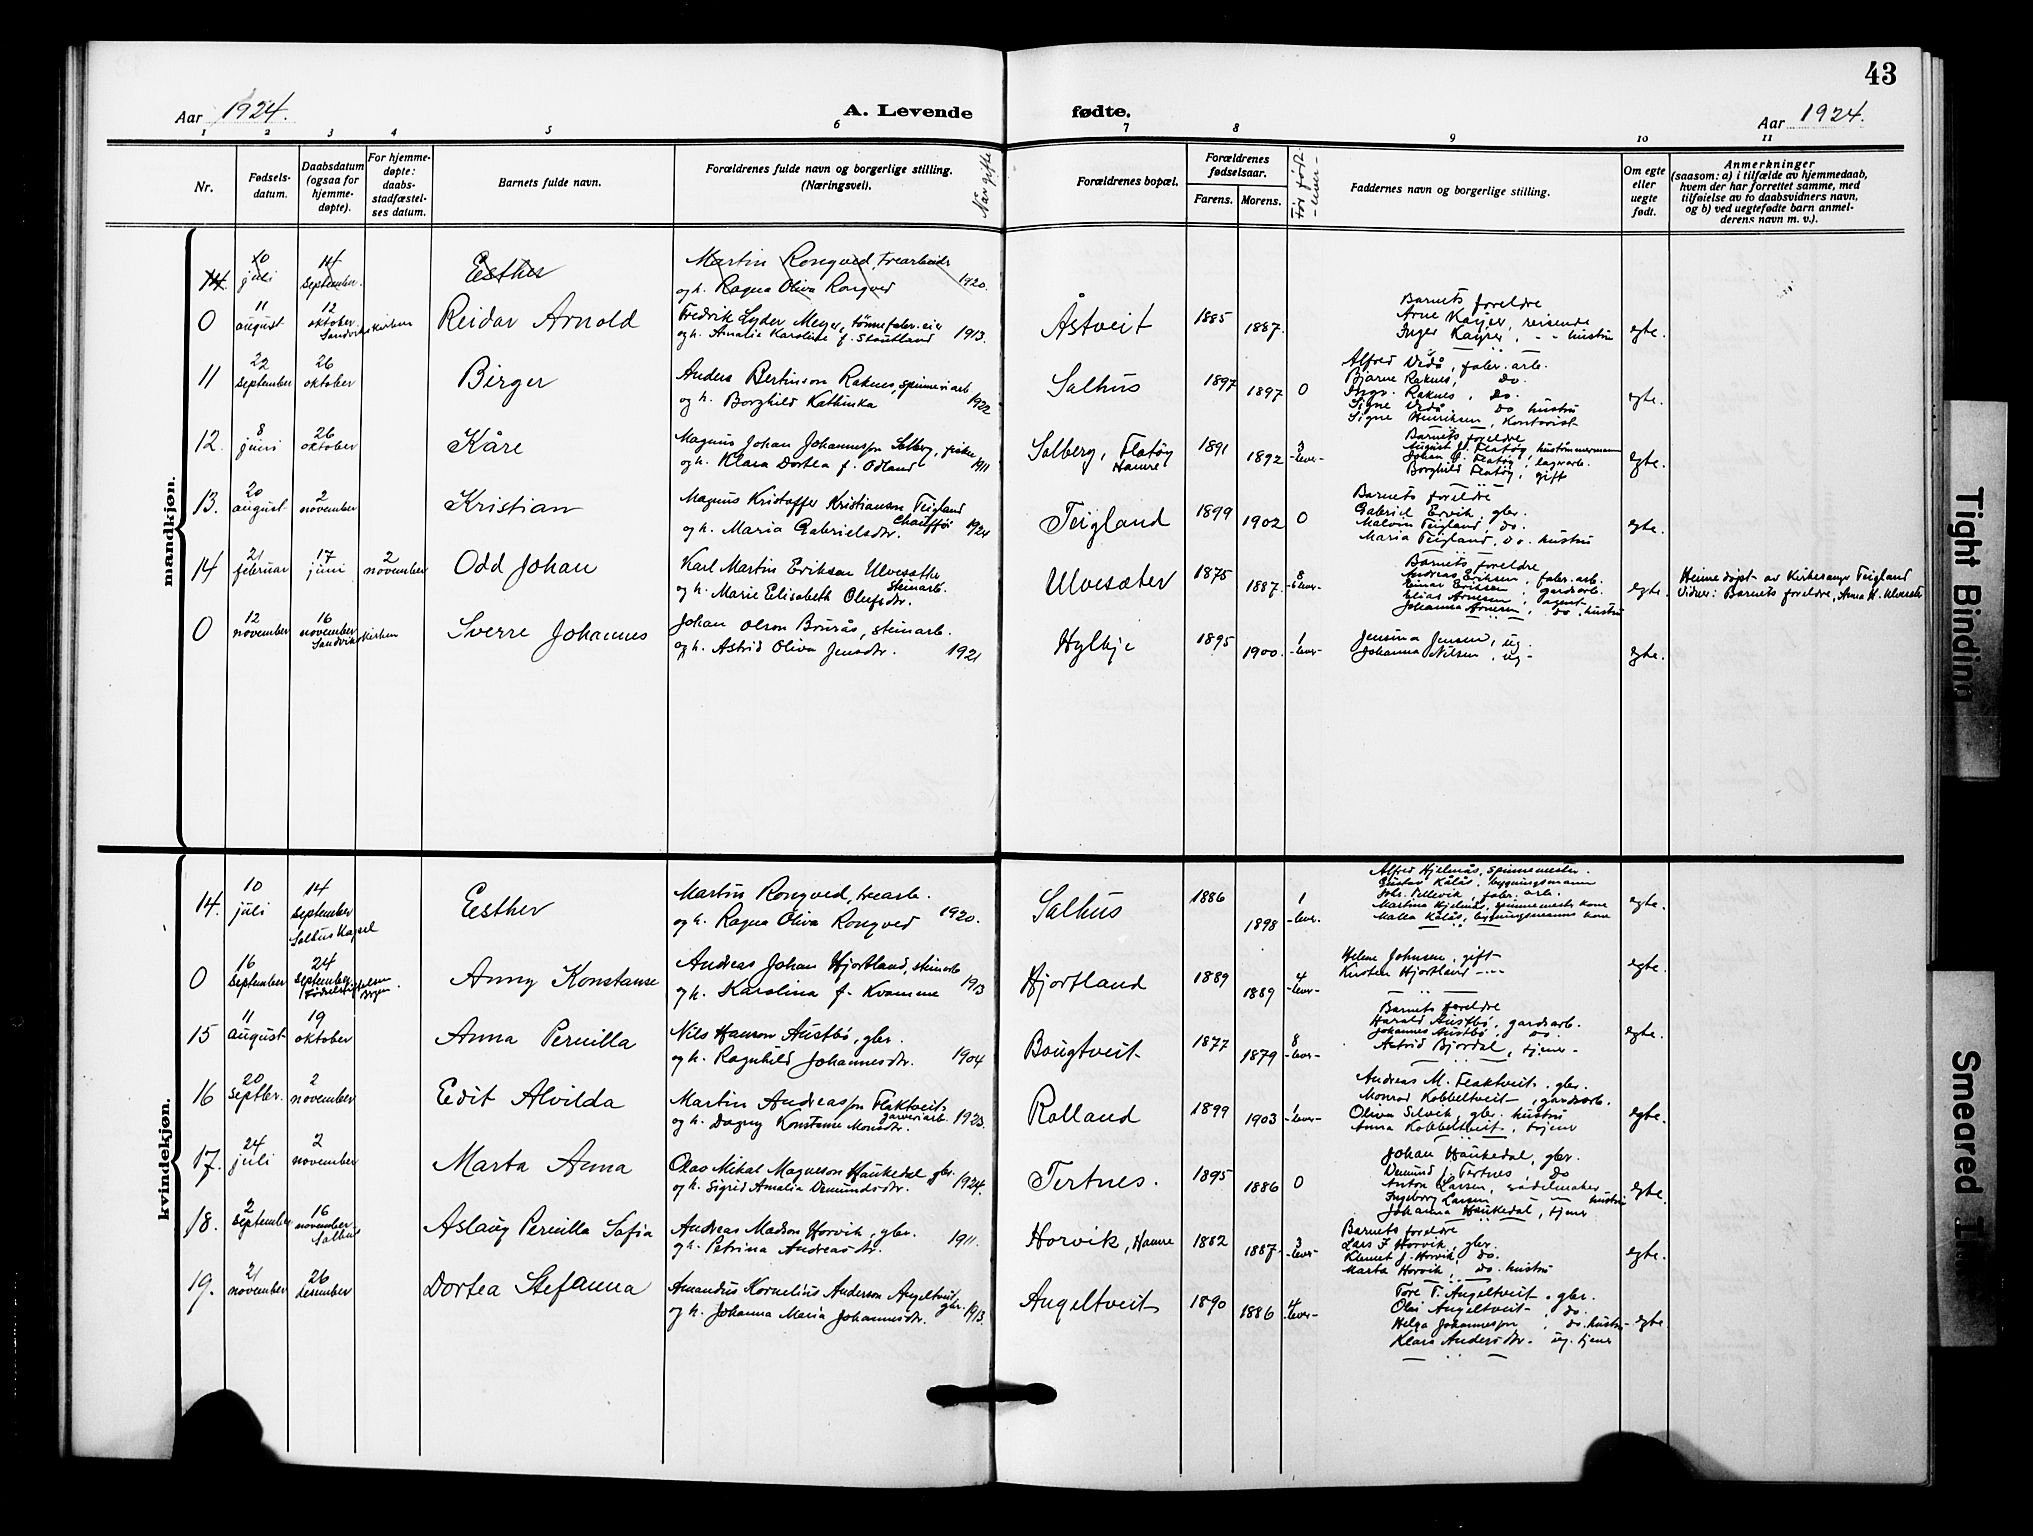 43
Aar 1924. A. Levende fødte. Aar 1924.
1 2 3 4 5 6 7 8 9 10 11
Nr.
Fødsels-
datum.
Daabsdatum
(ogsaa for
hjemme-
døpte).
For hjemme-
døpte:
daabs-
stadfæstel-
ses datum.
Barnets fulde navn.
Forældrenes fulde navn og borgerlige stilling.
(Næringsvei).
Når gifte
Forældrenes bopæl.
Forældrenes
fødselsaar.
Farens. Morens.
Faddernes navn og borgerlige stilling.
Om egte
eller
uegte
født.
Anmerkninger
(saasom: a) i tilfælde av hjemmedaab,
hvem der har forrettet samme, med
tilføielse av to daabsvidners navn,
og b) ved uegtefødte barn anmel-
derens navn m. v.).
mandkjøn.
14 10 juli 14 september. Esther Martin Rongved, trearbeider
og h. Ragna Oliva Rongved 1920.
0 11 august 12 oktober Sandvikskirken Reidar Arnold Fredrik Lyder Meyer, tønnefabr. eier
og h. Amalia Karoline f. Stoutland 1913. Åstveit 1885 1887. egte.
Barnets foreldre
Arne Kayser, reisende
Inger Kayser, - - hustru
11 22 september 26 oktober Birger Anders Bertinsson Raknes, spinneriarb
og h. Borghild Kathinka 1922 Salhus 1897 1897 0 egte.
Alfred Vedå, fabr. arb.
Bjarne Raknes, do.
Ingv. Raknes, do.
Signe Vedå do hustru
Signe Henriksen, kontorist
12. 8 juni 26 oktober Kåre Magnus Johan Johannessen Solberg, fisker
og h. Klara Dortea f. Odland 1911 Solberg, Flatøy
Hamre 1891 1892 3 -lever- egte.
Barnets foreldre
August J. Flatøy, hustømmermann
Johan J. Flatøy, lagerarb.
Borghild Flatøy, gift
13. 20 august 2 november Kristian Magnus Kristoffer Kristiansen Teigland
Chauffør
og h. Maria Gabrielsdtr. 1924 Teigland 1899 1902 0 egte.
Barnets foreldre
Gabriel Ervik, gbr.
Malvin Teigland, do.
Maria Teigland, do. hustru
14 21 februar 17 juni 2 november Odd Johan Karl Martin Eriksen Ulvesæther
Steinarb.
og h. Marie Elisabeth Olufsdtr. Ulvesæter 1875 1887. 8 egte.
Barnets foreldre
Andreas Eriksen, fabr. arb.
Einar Eriksen, gardsarb.
Elias Arnesen, agent
Johanna Arnesen, do. hustru
Heimedøpt av Kirkesanger Teigland
Vidner: Barnets foreldre, Anna K. Ulvesæter
0 12 november 16 november Sandvikskirken Sverre Johannes Johan Olson Brurås, steinarb.
og h. Astrid Oliva Jensdtr. 1921 Hylkje 1895 1900. 1 -lever- egte.
Jensina Jensen, ug.
Johanna Nilsen, ug-
kvindekjøn.
14. 10 juli 14 september Salhus Kapel Esther Martin Rongved, trearb.
og h. Ragna Oliva Rongved 1920. Salhus 1886 1898 1 -lever. egte.
Alfred Hjelmås, spinnemester.
Gustav Kålås, bygningsmann
Joh. Tellevik, fabr. arb.
Martina Hjelmås, spinnemests kone
Malla Kålås, bygningsmanns kone
0 16 september 24 september Fødselsstiftelsen Bergen. Anny Konstanse Andreas Johan Hjortland, steinarb
og h. Karolina f. Kvamme 1913 Hjortland 1889 1889 4 -lever- egte.
Helene Johnsen, gift-
Kirsten Hjortland ----
15 11 august 19 oktober Anna Pernilla Nils Hanson Austbø, gbr.
og h. Ragnhild Johannesdtr. 1904 Baugtveit 1877 1879 8 -lever- egte.
Barnets foreldre
Harald Austbø, gardsarb.
Johannes Austbø, do
Astrid Bjordal, tjener-
16 20 septbr. 2 november Edit Alvilda Martin Andreassen Flaktveit,
garveriarb.
og h. Dagny Konstanse Monsdtr. 1923. Rolland 1899 1903 1 -lever- egte.
Andreas M. Flaktveit, gbr.
Monrad Kobbeltveit, gardsarb.
Oliva Selvik, gbr. hustru
Anna Kobbeltveit, tjener
17. 24 juli 2 november Marta Anna Olav Mikal Magneson Haukedal gbr.
og h. Sigrid Amalia Demundsdtr. 1924. Tertnes. 1895 1886 0 egte.
Johan Haukedal, gbr.
Demund J. Tertnes do
Anton Larsen, sadelmaker
Ingeborg Larsen - - hustru
Johanna Haukedal, tjener.
18. 2 september 16 november Salhus Aslaug Pernilla Sofia Andreas Madson Horvik, gbr.
og h. Petrina Andreasdtr. 1911. Horvik, Hamre 1882 1887. 3 -lever- egte.
Barnets foreldre
Lars J Horvik, gbr.
Klemet J. Horvik, do.
Marta Horvik, do. hustru
19. 21 november 26 desember Dortea Stefanna Amandus Kornelius Anderson Angeltveit,
gbr.
og h. Johanna Maria Johannesdtr. 1913. Angeltveit 1890 1886 4 -lever- egte.
Tore T. Angeltveit, gbr.
Olai Angeltveit- do.
Helga Johannessen, do. hustru
Klara Andersdtr- ug. tjener
Tight Binding
Smeared